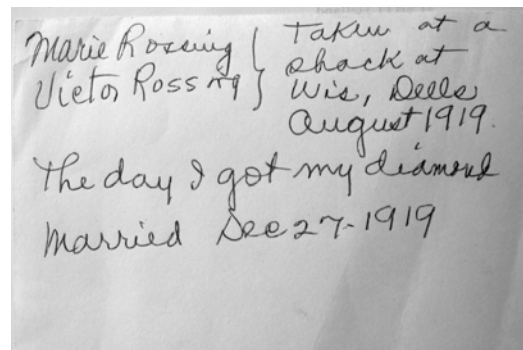 Marie Rossing
Victor Rossing
Taken at a
shack at
Wis, Dells
August 1919.
The day I got my diamond
Married Dec 27-1919